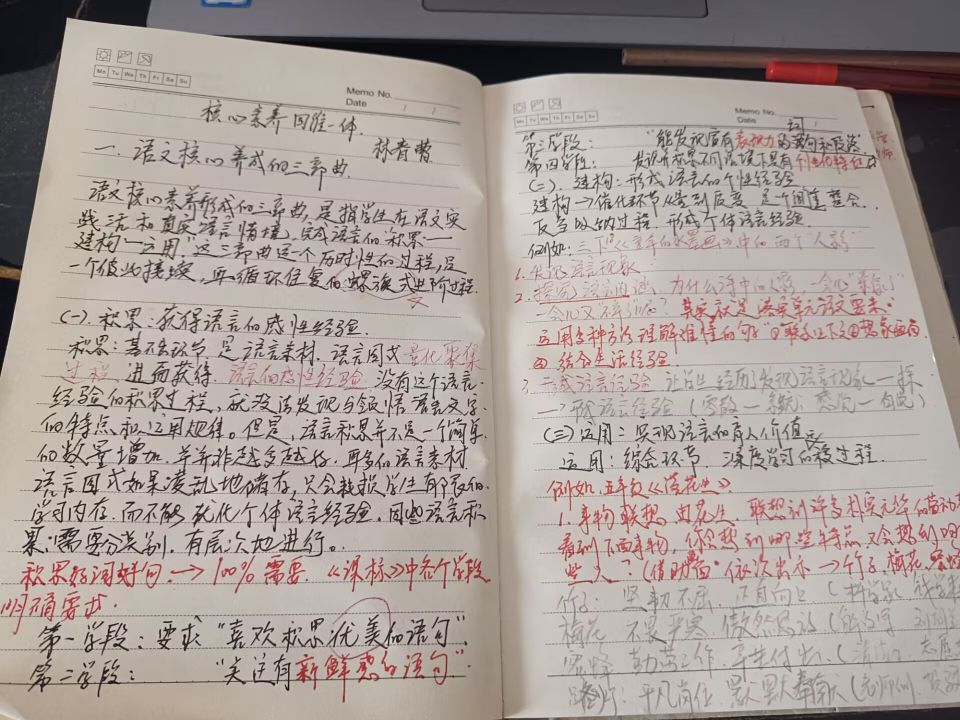 Mo Tu We Th Fr Sa Su
Memo No.
Date / /
核心素养四维一体.
林春曹
一. 语文核心养成的三部曲.
语文核心素养形成的三部曲,是指学生在语文实
践活和真实语言情境,完成语言的“积累——
建构——运用”这三部曲这一个历时性的过程,是
一个彼此接续,再循环往复的螺旋式上升过程.
(一). 积累:获得语言的感性经验.
积累:基本环节,是语言素材,语言图式量化聚集
过程,进而获得,语言的感性经验 没有这个语言
经验的积累过程,就没法发现与领悟语言文字
的特点和运用规律。但是,语言积累并不是一个简单
的数量增加,并非越多越好,再多的语言素材
语言图式如果凌乱地储存,只会耗损学生有限的
学习内存,而不能优化个体语言经验,因此语言积
累,需要分类别,有层次地进行。
积累好词好句.→100%需要.《课标》中各个学段
明确要求.
第一学段:要求“喜欢积累优美的语句”.
第二学段: “关注有新鲜感的语句”.
Memo No.
Date / /
词
第三学段: “能发现富有表现力的
第四学段: 积累不同语境下具有个性化特征
(二). 建构:形成语言的个性经验
建构→催化环节 是一个
过程,形成个体语言经验.
例如:三下《童年的水墨画》中的两个“人影”
1. 发现语言现象
2. 探究语言奥秘,为什么诗中的人影,一会儿“
一会儿又 ? 其实就是落实单元语文要素.
运用多种方法理解难懂的句子 ①联系上下文②想象画面
结合生活经验.
3. 形成语言经验 让学生经历发现语言现象——探
→形成语言经验(零散—系统,
(三)运用:实现语言的育人价值
运用:综合环节,深度学习的 过程.
例如,五年级《落花生》.
1. 事物联想 由花生,联想到许多朴实无华
看到下面事物,你会想到哪些特点,又会想到哪
些人?(借助 依次出示→竹子,梅花,蜜蜂
竹子:坚韧不屈,正直向上(科学家
梅花 不畏严寒 傲然
蜜蜂 勤劳工作,辛苦付出,(
路灯:平凡岗位 默默奉献(老师们,